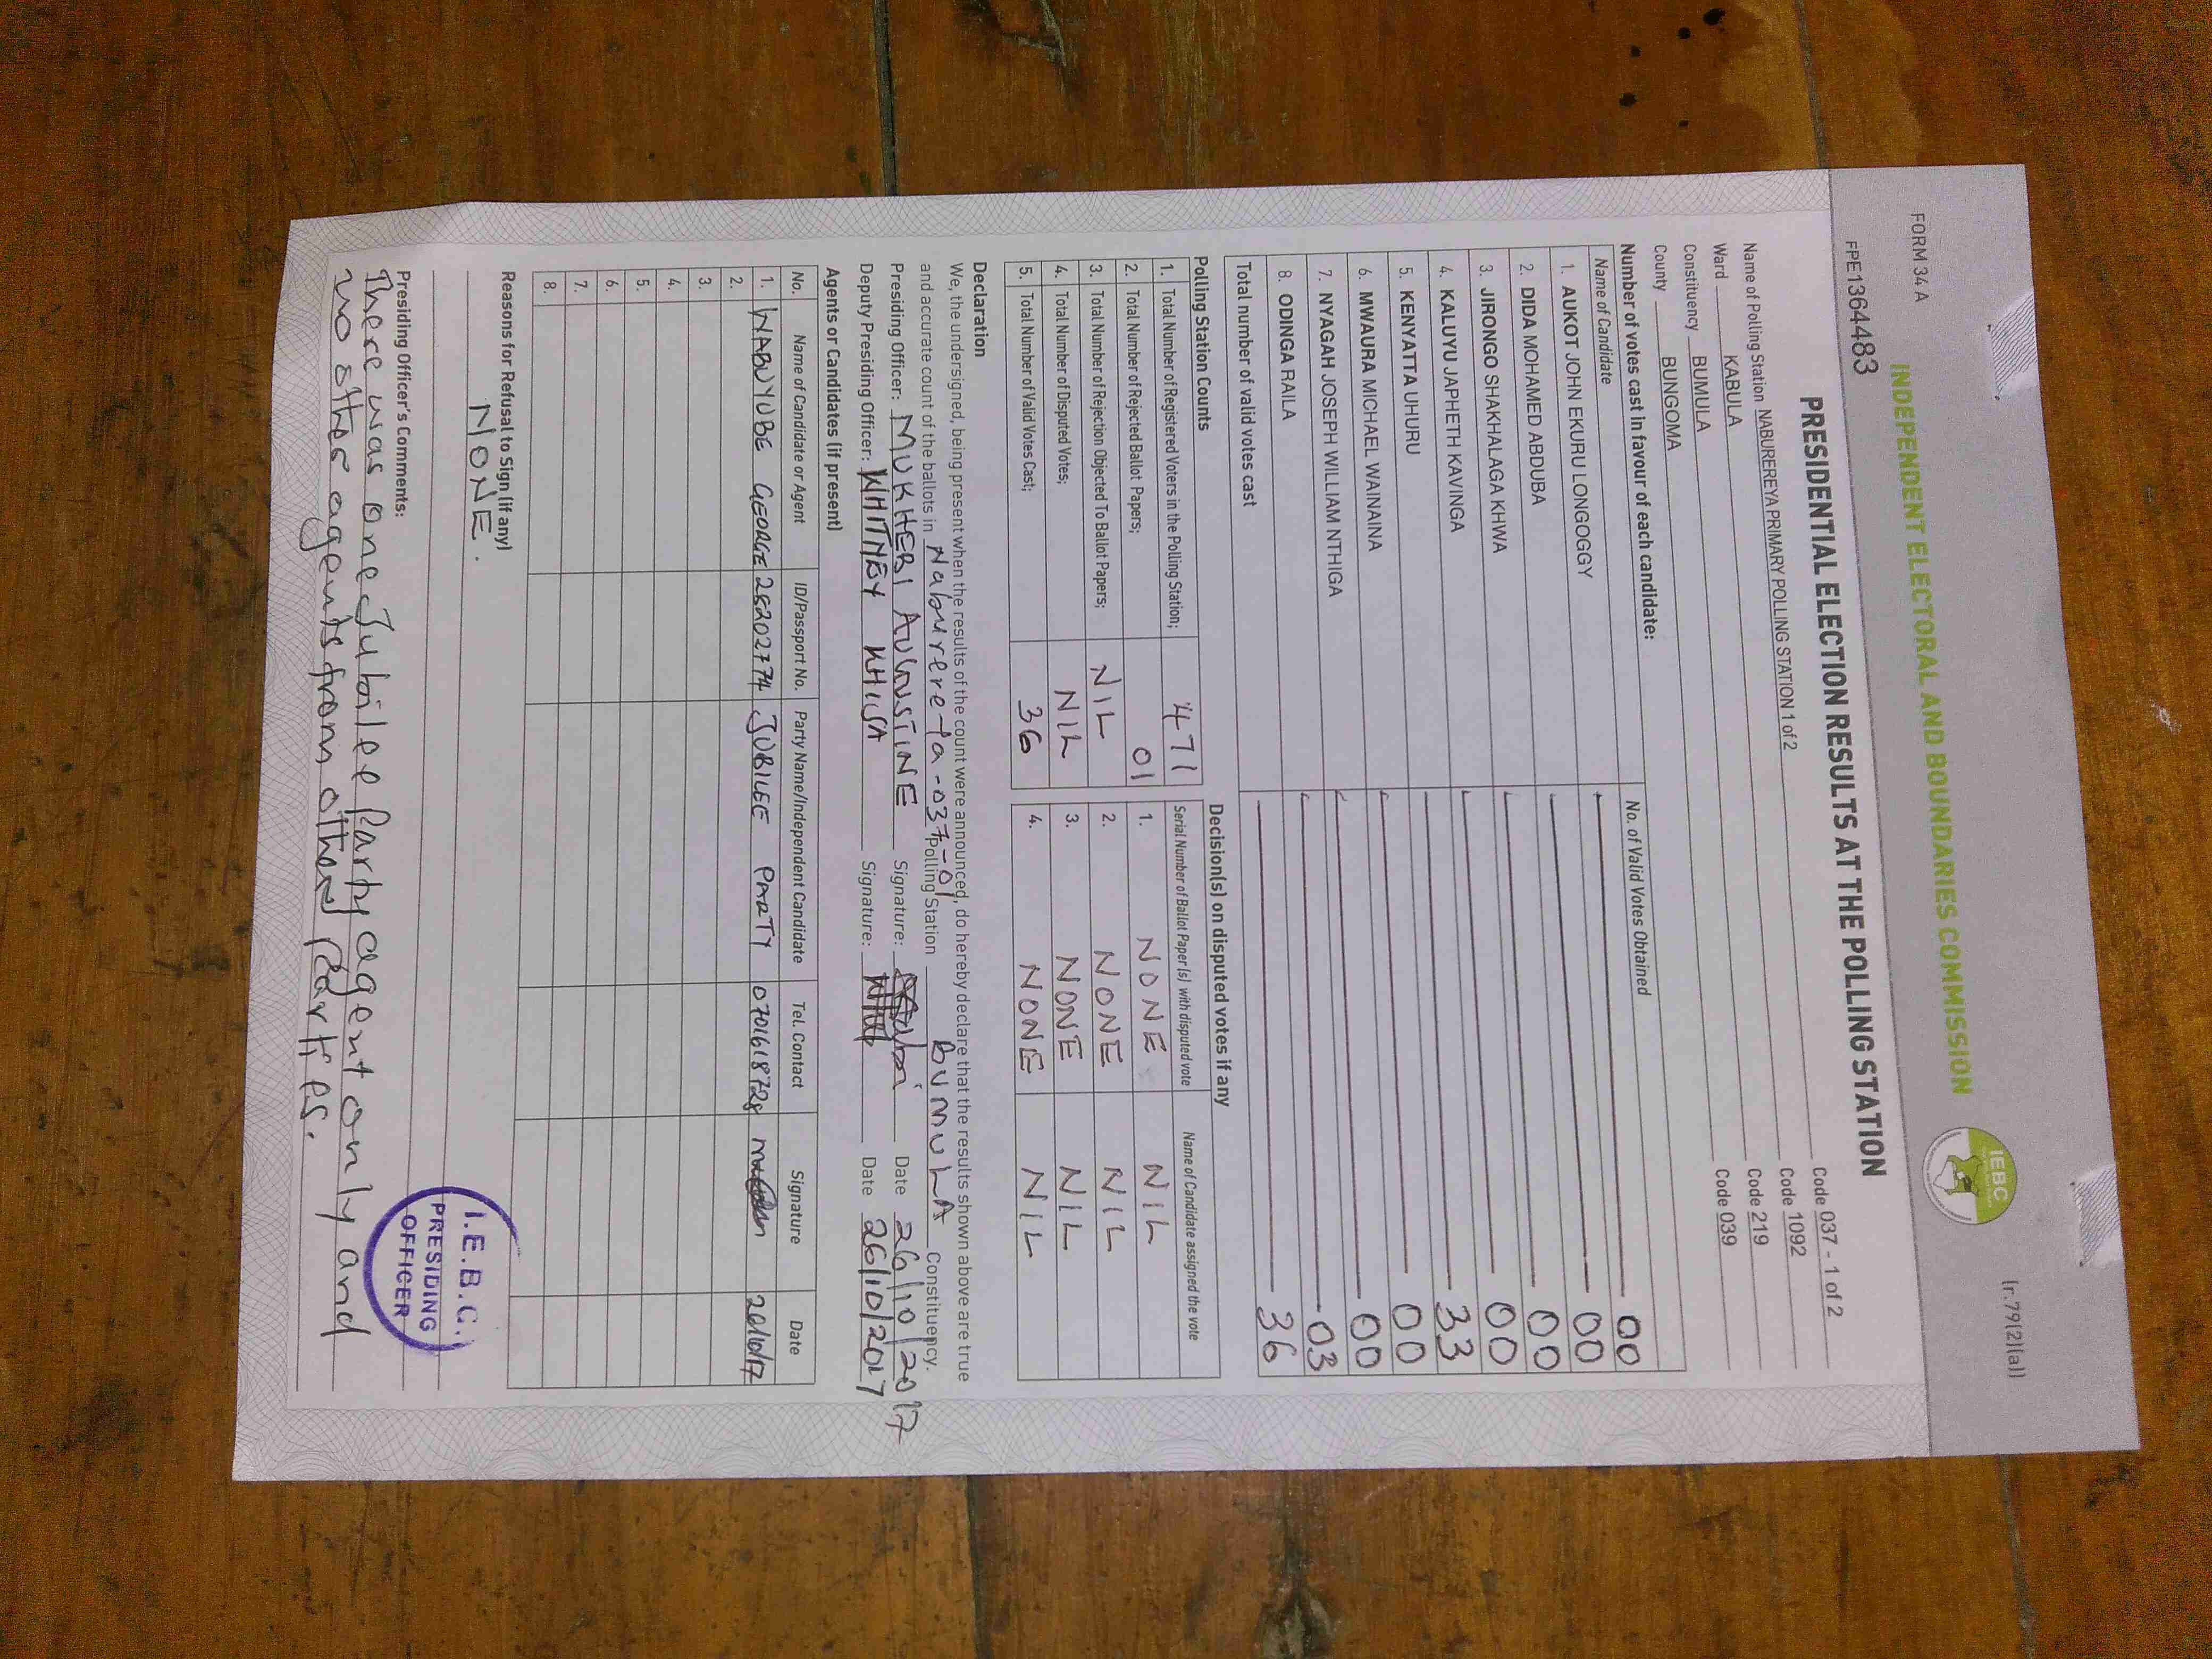 FORM 34 A
(r.79(2)(a))
INDEPENDENT ELECTORAL AND BOUNDARIES COMMISSION
IEBC
FPE1364483
PRESIDENTIAL ELECTION RESULTS AT THE POLLING STATION
Name of Polling Station NABUREREYA PRIMARY POLLING STATION 1 of 2 Code 037 - 1 of 2
Ward KABULA Code 1092
Constituency BUMULA Code 219
County BUNGOMA Code 039
Number of votes cast in favour of each candidate:
Name of Candidate No. of Valid Votes Obtained
1. AUKOT JOHN EKURU LONGOGGY 00
2. DIDA MOHAMED ABDUBA 00
3. JIRONGO SHAKHALAGA KHWA 00
4. KALUYU JAPHETH KAVINGA 00
5. KENYATTA UHURU 33
6. MWAURA MICHAEL WAINAINA 00
7. NYAGAH JOSEPH WILLIAM NTHIGA 00
8. ODINGA RAILA 03
Total number of valid votes cast 36
Polling Station Counts
1. Total Number of Registered Voters in the Polling Station; 471
2. Total Number of Rejected Ballot Papers; 01
3. Total Number of Rejection Objected To Ballot Papers; NIL
4. Total Number of Disputed Votes; NIL
5. Total Number of Valid Votes Cast; 36
Decision(s) on disputed votes if any
Serial Number of Ballot Paper (s) with disputed vote Name of Candidate assigned the vote
1. NONE NIL
2. NONE NIL
3. NONE NIL
4. NONE NIL
Declaration
We, the undersigned, being present when the results of the count were announced, do hereby declare that the results shown above are true
and accurate count of the ballots in Naburereya-037-01 Polling Station BUMULA Constituency.
Presiding Officer: MUKHEBI AUGUSTINE Signature: Date 26/10/2017
Deputy Presiding Officer: WHITNEY KHISA Signature: Date 26/10/2017
Agents or Candidates (if present)
No. Name of Candidate or Agent ID/Passport No. Party Name/Independent Candidate Tel. Contact Signature Date
1. WABUYUBE GEORGE 28202774 JUBILEE PARTY 0701618728 26/10/17
2.
3.
4.
5.
6.
7.
8.
Reasons for Refusal to Sign (if any)
NONE.
Presiding Officer's Comments:
There was one Jubilee Party agent only and
no other agents from other parties.
I.E.B.C.
PRESIDING
OFFICER